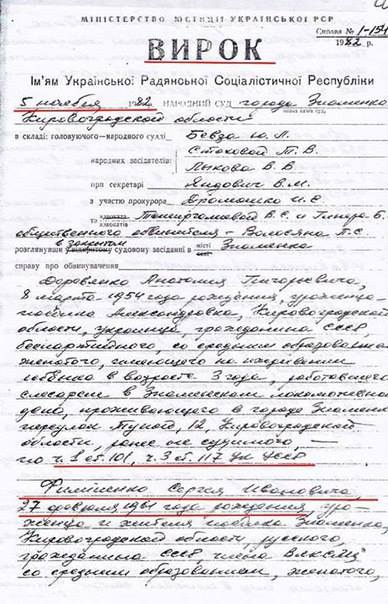 МІНІСТЕРСТВО ЮСТИЦІЇ УКРАЇНСЬКОЇ РСР
Справа № 1-154
1982 р.
ВИРОК
Ім'ям Української Радянської Соціалістичної Республіки
5 ноября 1982 НАРОДНИЙ СУД города Знаменки
Кировоградской области
в складі: головуючого—народного судді Бевза Ю. Л.
народних засідателів: В.
Лыкова В. В.
при секретарі Яндович В. М.
з участю прокурора И. С.
адвокатів В. С. и
общественного обвинителя - П. С.
розглянувши в закрытом судовому засіданні в місті Знаменка
справу про обвинувачення
Деровянко Анатолия Григорьевича,
8 марта 1954 года рождения, уроженца
Александровка, Кировоградской
области, украинца, гражданина СССР
беспартийного, со средним образованием
женатого, имеющего на иждивении
ребенка в возрасте 3 года, работавшего
слесарем в Знаменском локомотивном
депо, проживающего в городе Знаменке
переулок 12, Кировоградской
области, ранее не судимого, —
по ч. 1 ст. 101, ч. 3 ст. 117 УК УССР
Сергея Ивановича,
27 февраля 1961 года рождения, уро-
женца и жителя Знаменка,
Кировоградской области, русского,
гражданина СССР члена ВЛКСМ
со средним образованием, женатого,